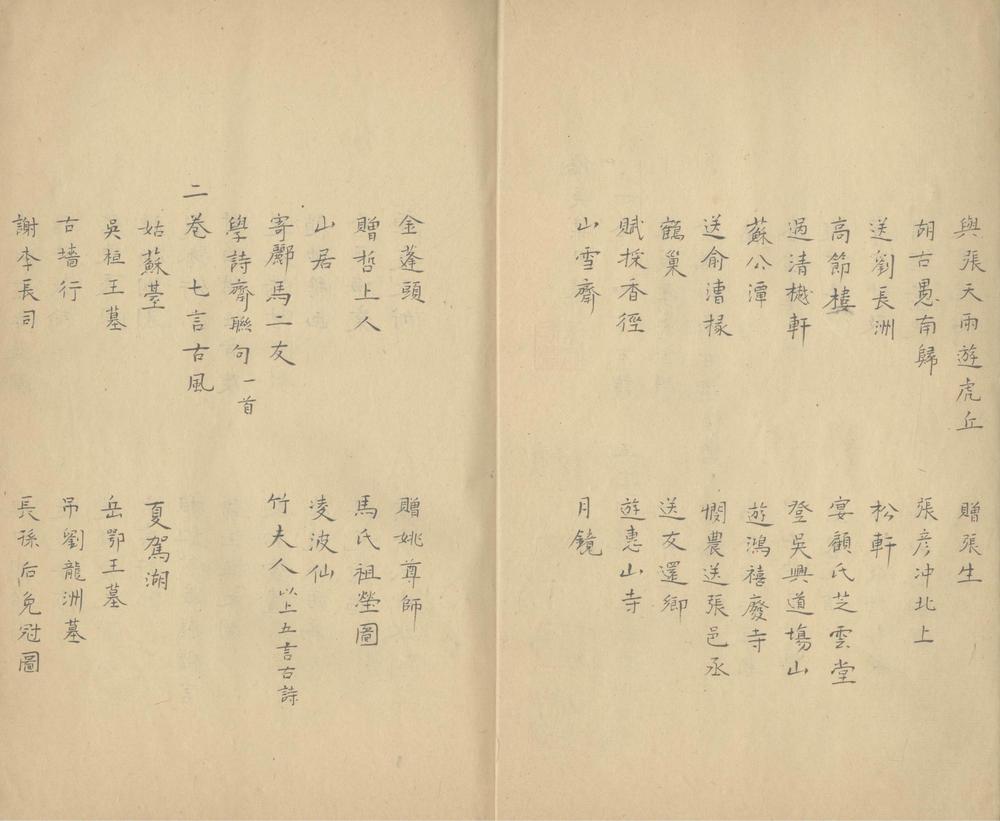 與張天雨遊虎丘 贈張生
胡古愚南歸 張彦冲北上
送劉長洲 松軒
高節樓 宴顧氏芝雲堂
過清樾軒 登吳興道場山
蘇公潭 遊鴻禧廢寺
送俞漕掾 憫農送張邑丞
鶴巢 送友還鄉
賦採香徑 遊惠山寺
山雪齋 月鏡
金蓬頭 贈姚尊師
贈哲上人 馬氏祖塋圖
山居 凌波仙
寄酈馬二友 竹夫人 以上五言古詩
學詩齋聯句 一首
二卷 七言古風
姑蘇臺 夏駕湖
吳桓王墓 岳鄂王墓
古墻行 吊劉龍洲墓
謝李長司 長孫后免冠圖